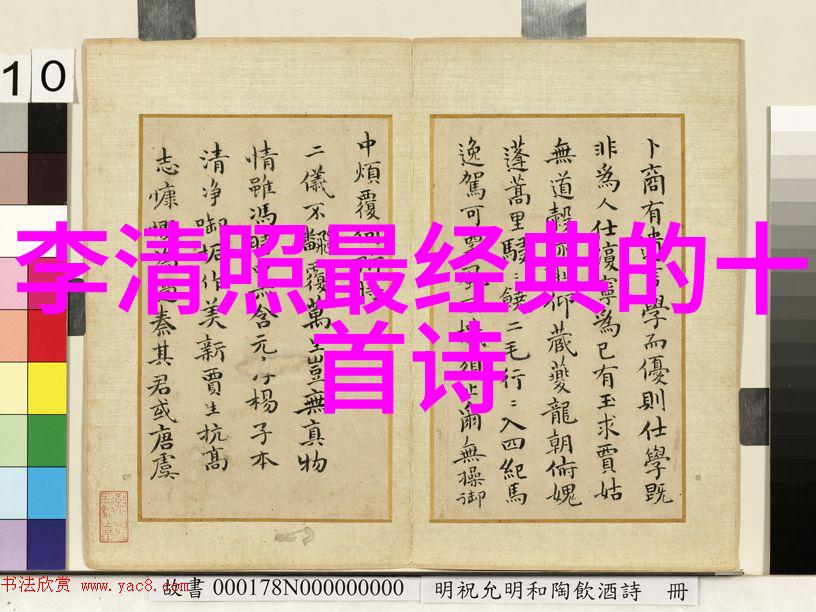 10
李清照最经典的十
首诗
卜商有言學而優則仕學既
非為人仕優寧為己有玉求賈姑
無道穀藏夔龍朝俯媿
蓬蒿里二毛行入四紀馬
逸駕可爾無操御
中煩覆
二儀不覆萬豈無真物
情雖馮含元楊子本
清净作美新賈生抗高
志慷秦其君或唐虞
书法欣赏 www.yac8.com
故書 000178N000000000
明祝允明和陶飲酒詩 冊